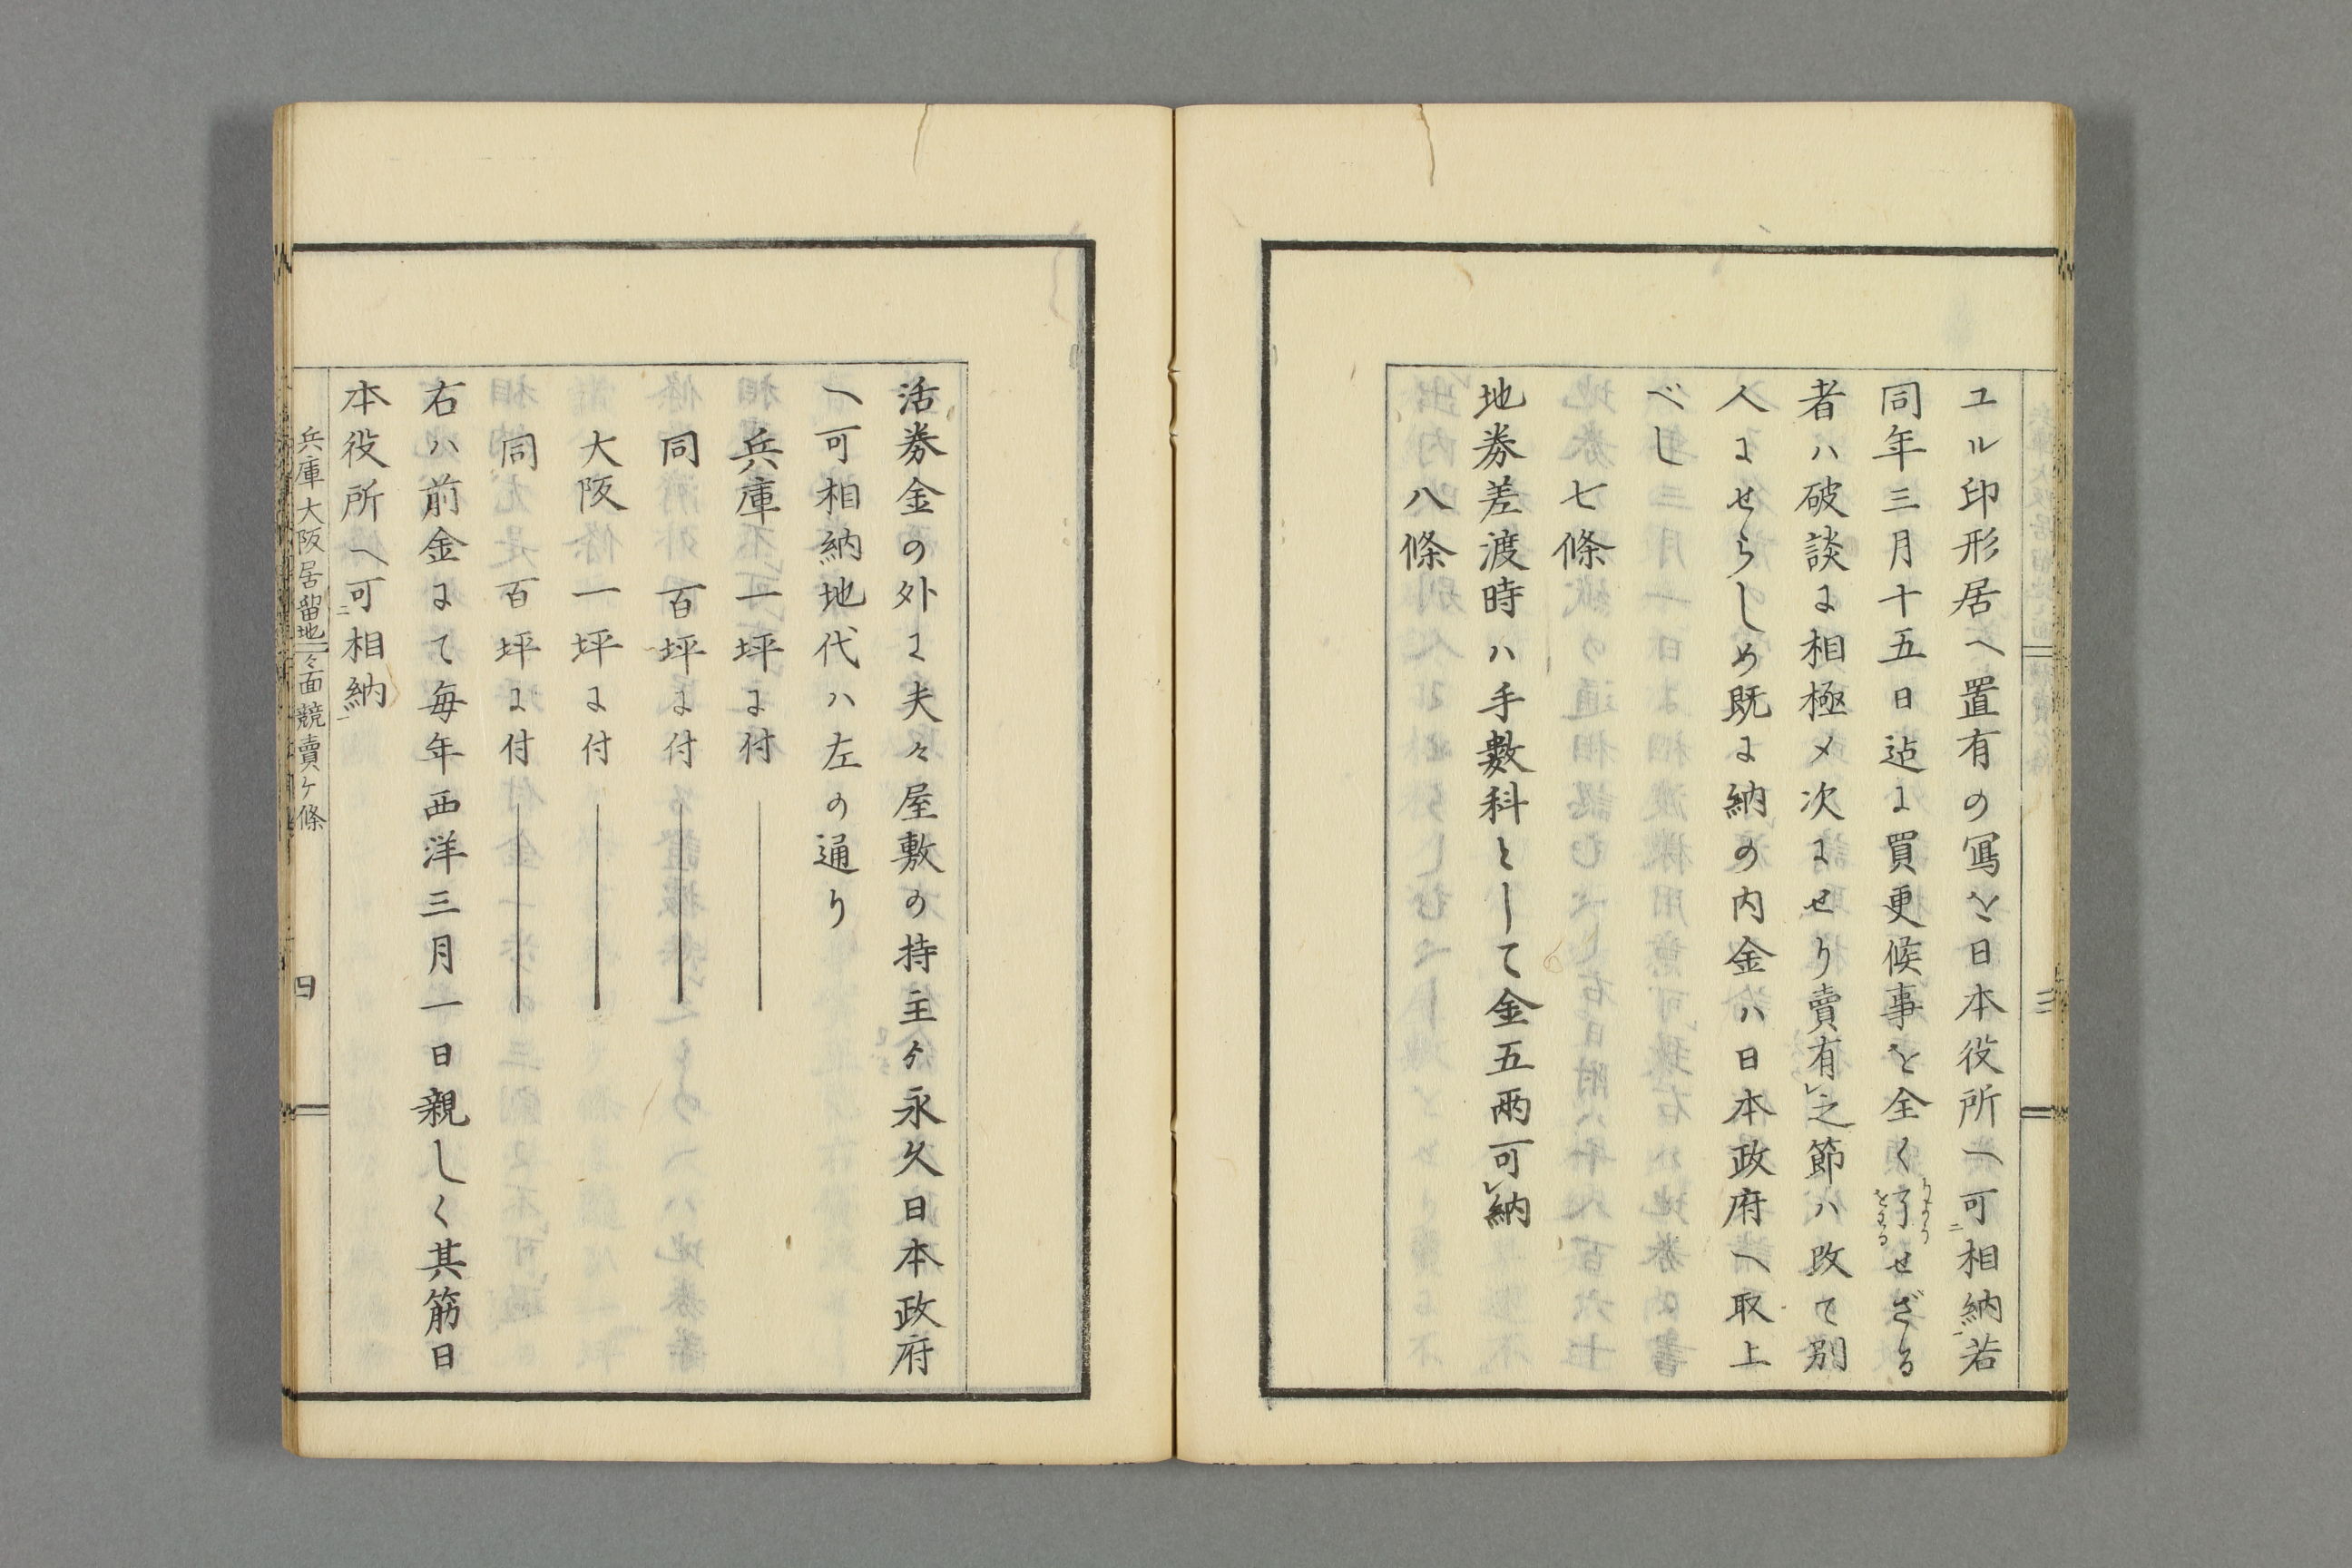 ユル印形居へ置有の冩を日本役所へ可二相納一若
同年三月十五日迠に買更候事を全く了せざる
りょう
をはる
者ハ破談に相極メ次にせり賣有レ之節ハ改て別
人にせらしめ既に納の内金ハ日本政府へ取上
べし
七條
地券差渡時ハ手數科として金五兩可レ納
八條
活券金の外に夫々屋敷の持主ゟ永久日本政府
へ可相納地代ハ左の通り
兵庫 一坪に付
同 百坪に付
大阪 一坪に付
同 百坪に付
右ハ前金にて毎年西洋三月一日親しく其筋日
本役所へ可二相納一
兵庫大阪居留地々面競賣ケ條
四
三